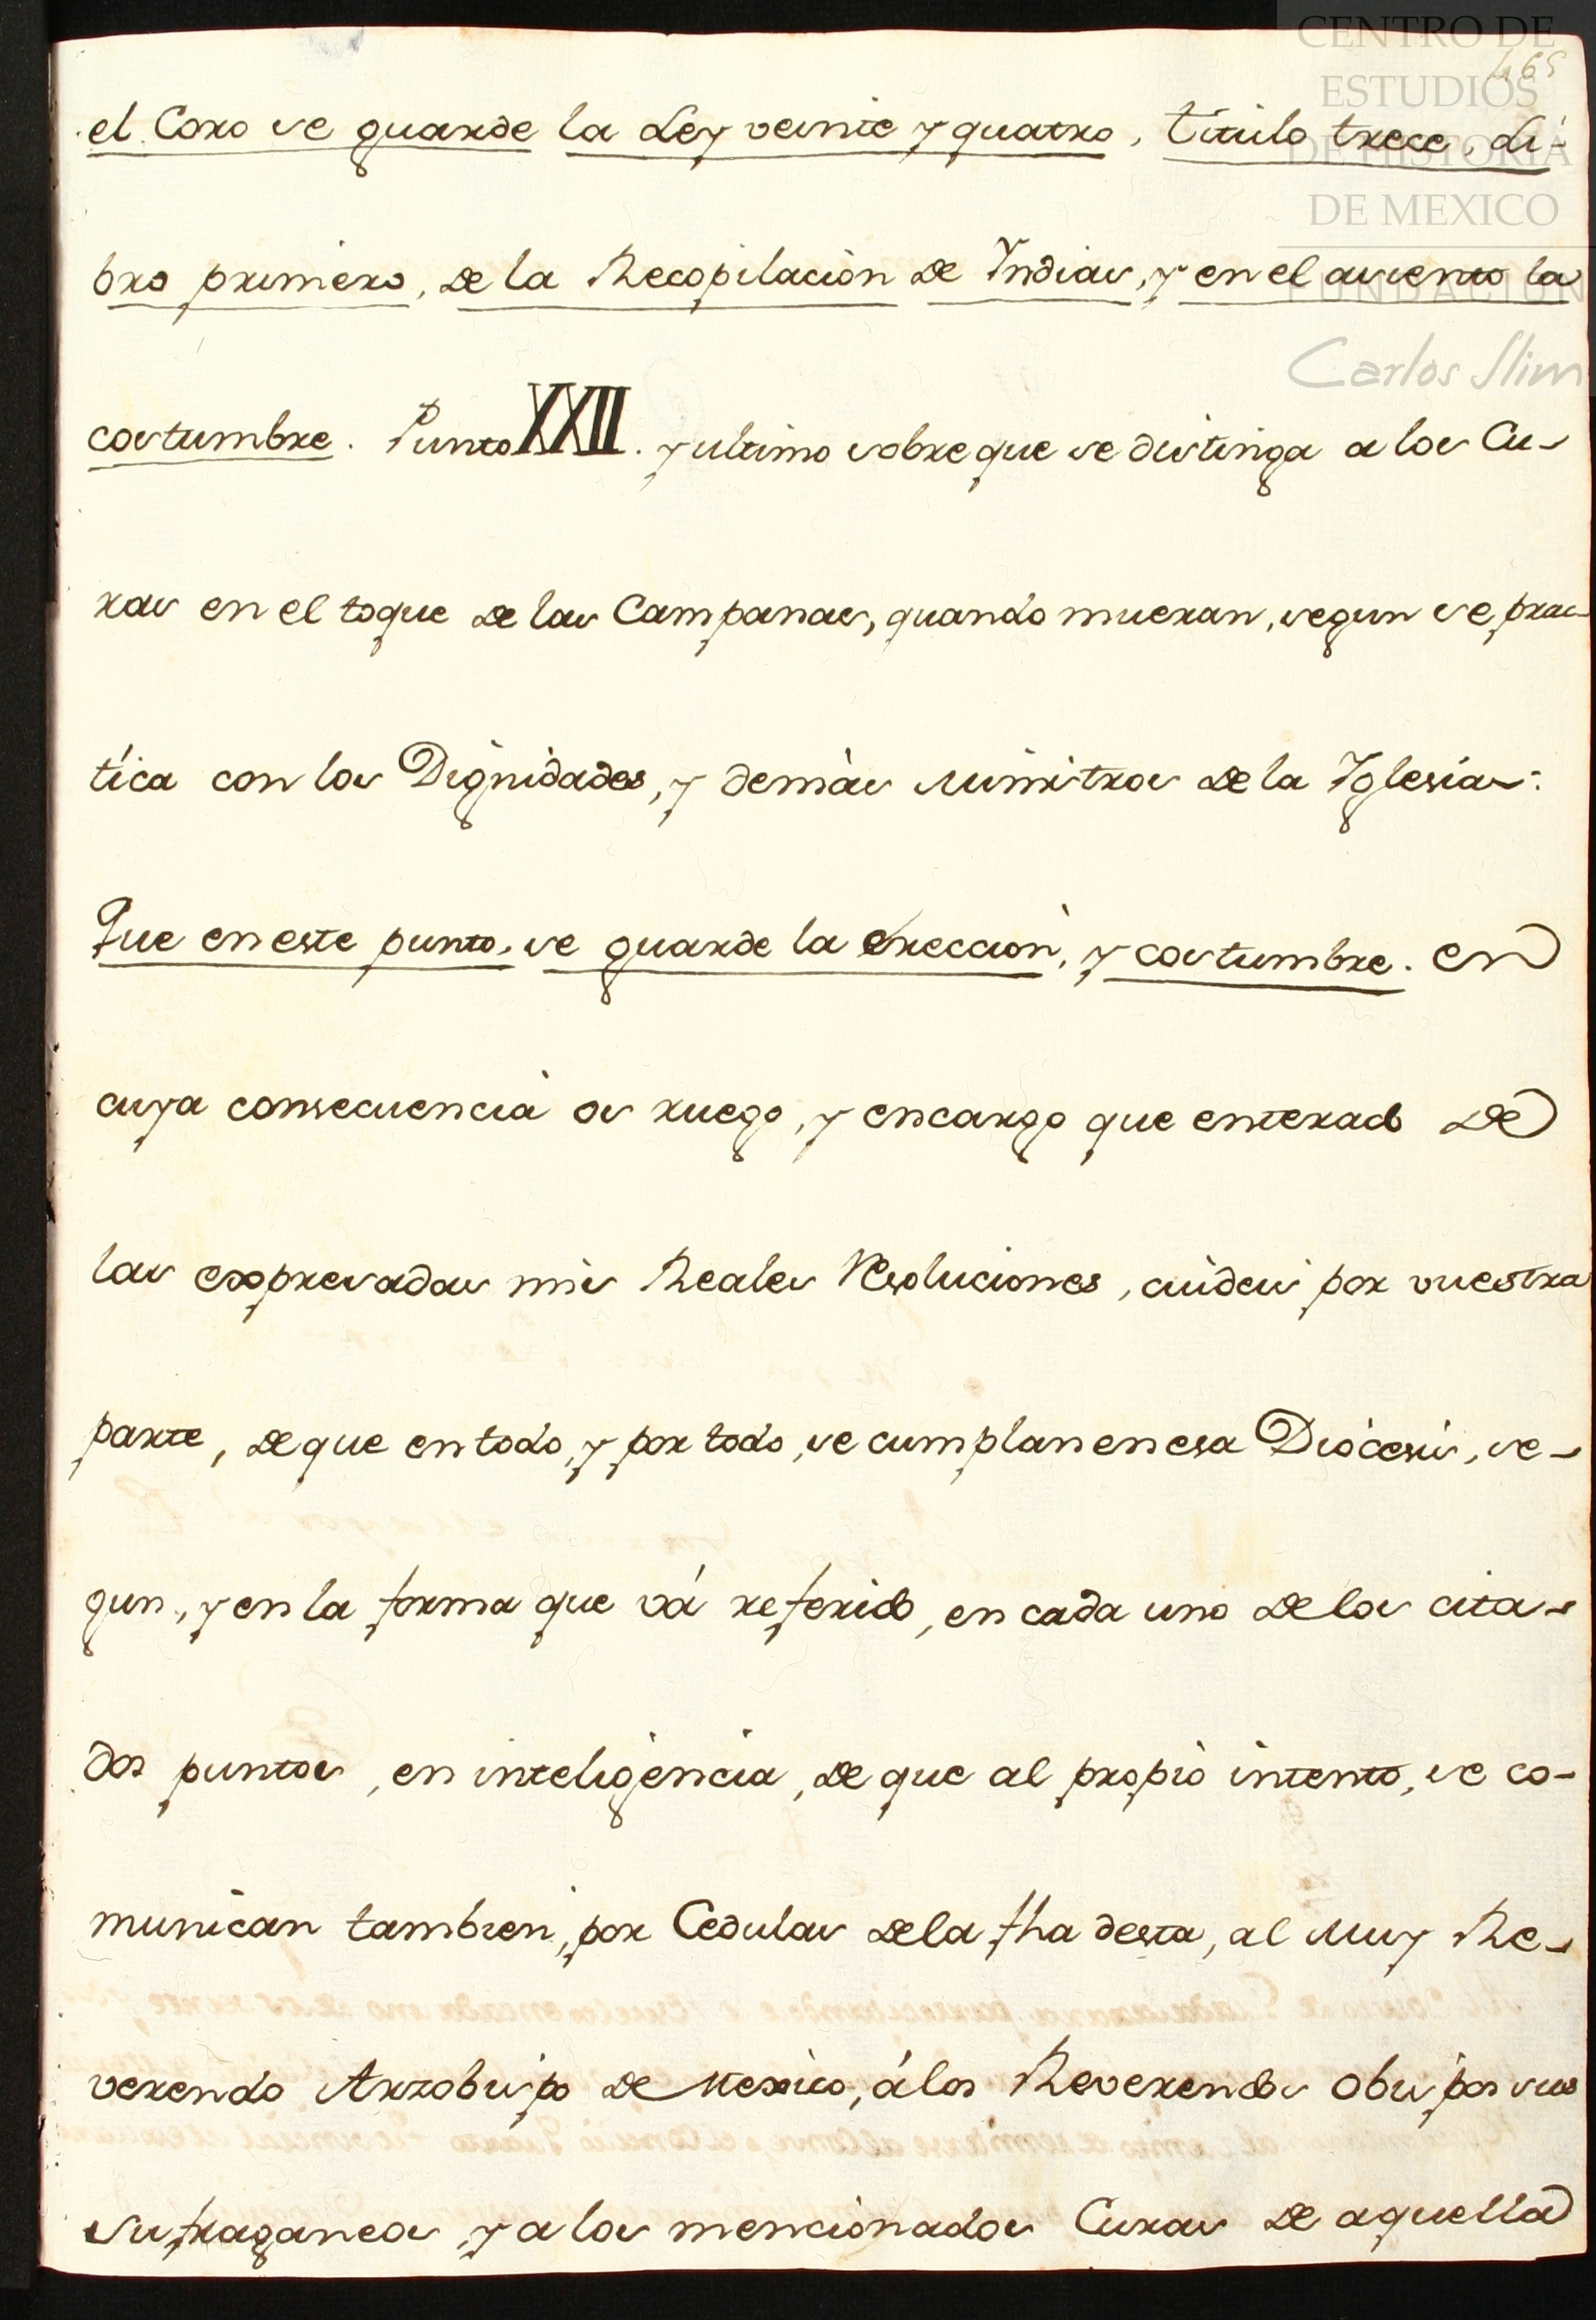 CENTRO DE
ESTUDIOS
DE HISTORIA
DE MEXICO
FUNDACION
Carlos Slim
465
el Coro se guarde la Ley veinte y quatro, titulo trece, Li-
bro primero, de la Recopilaciòn de Yndias, y en el asiento la
costumbre. Punto XXII. y ultimo sobre que se distinga a los Cu-
ras en el toque de las Campanas, quando mueran, segun se prac-
tica con los Dignidades, y demàs Ministros de la Yglesia:
Que en este punto, se guarde la ereccion, y costumbre. en
cuya consecuencia os ruego, y encargo que enterado de
las expresadas mis Reales Resoluciones, cuideis por vuestra
parte, de que en todo, y por todo, se cumplan en esa Diòcesis, se-
gun, y en la forma que vá referido, en cada uno de los cita-
dos puntos, en inteligencia, de que al propio intento, se co-
munican tambien, por Cedulas de la fha desta, al Muy Re-
verendo Arzobispo de Mexico, á los Reverendos Obispos sus
sufraganeos, y a los mencionados Curas de aquella